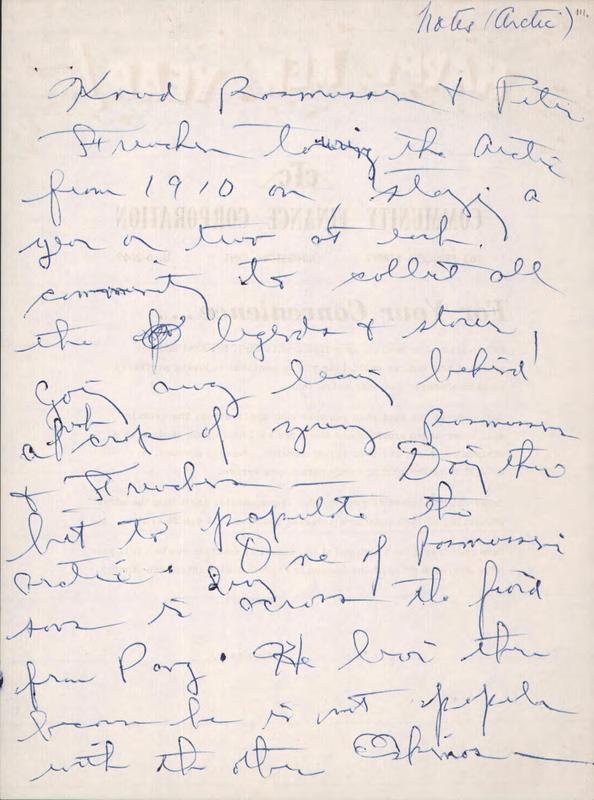 Notes (Arctic) III.
Knud Rasmussen & Peter
Freuchen touring the Arctic
from 1910 on, staying a
year or two at each
community to collect all
the legends & stories
going away leaving behind
a fresh crop of young Rasmussen
& Freuchens — Doing their
bit to populate the
Arctic. One of Rasmussen's
sons is living across the fiord
from Pang. He lives there
because he is not popular
with the other Eskimos —
COMMUNITY FINANCE CORPORATION
For Your Convenience...